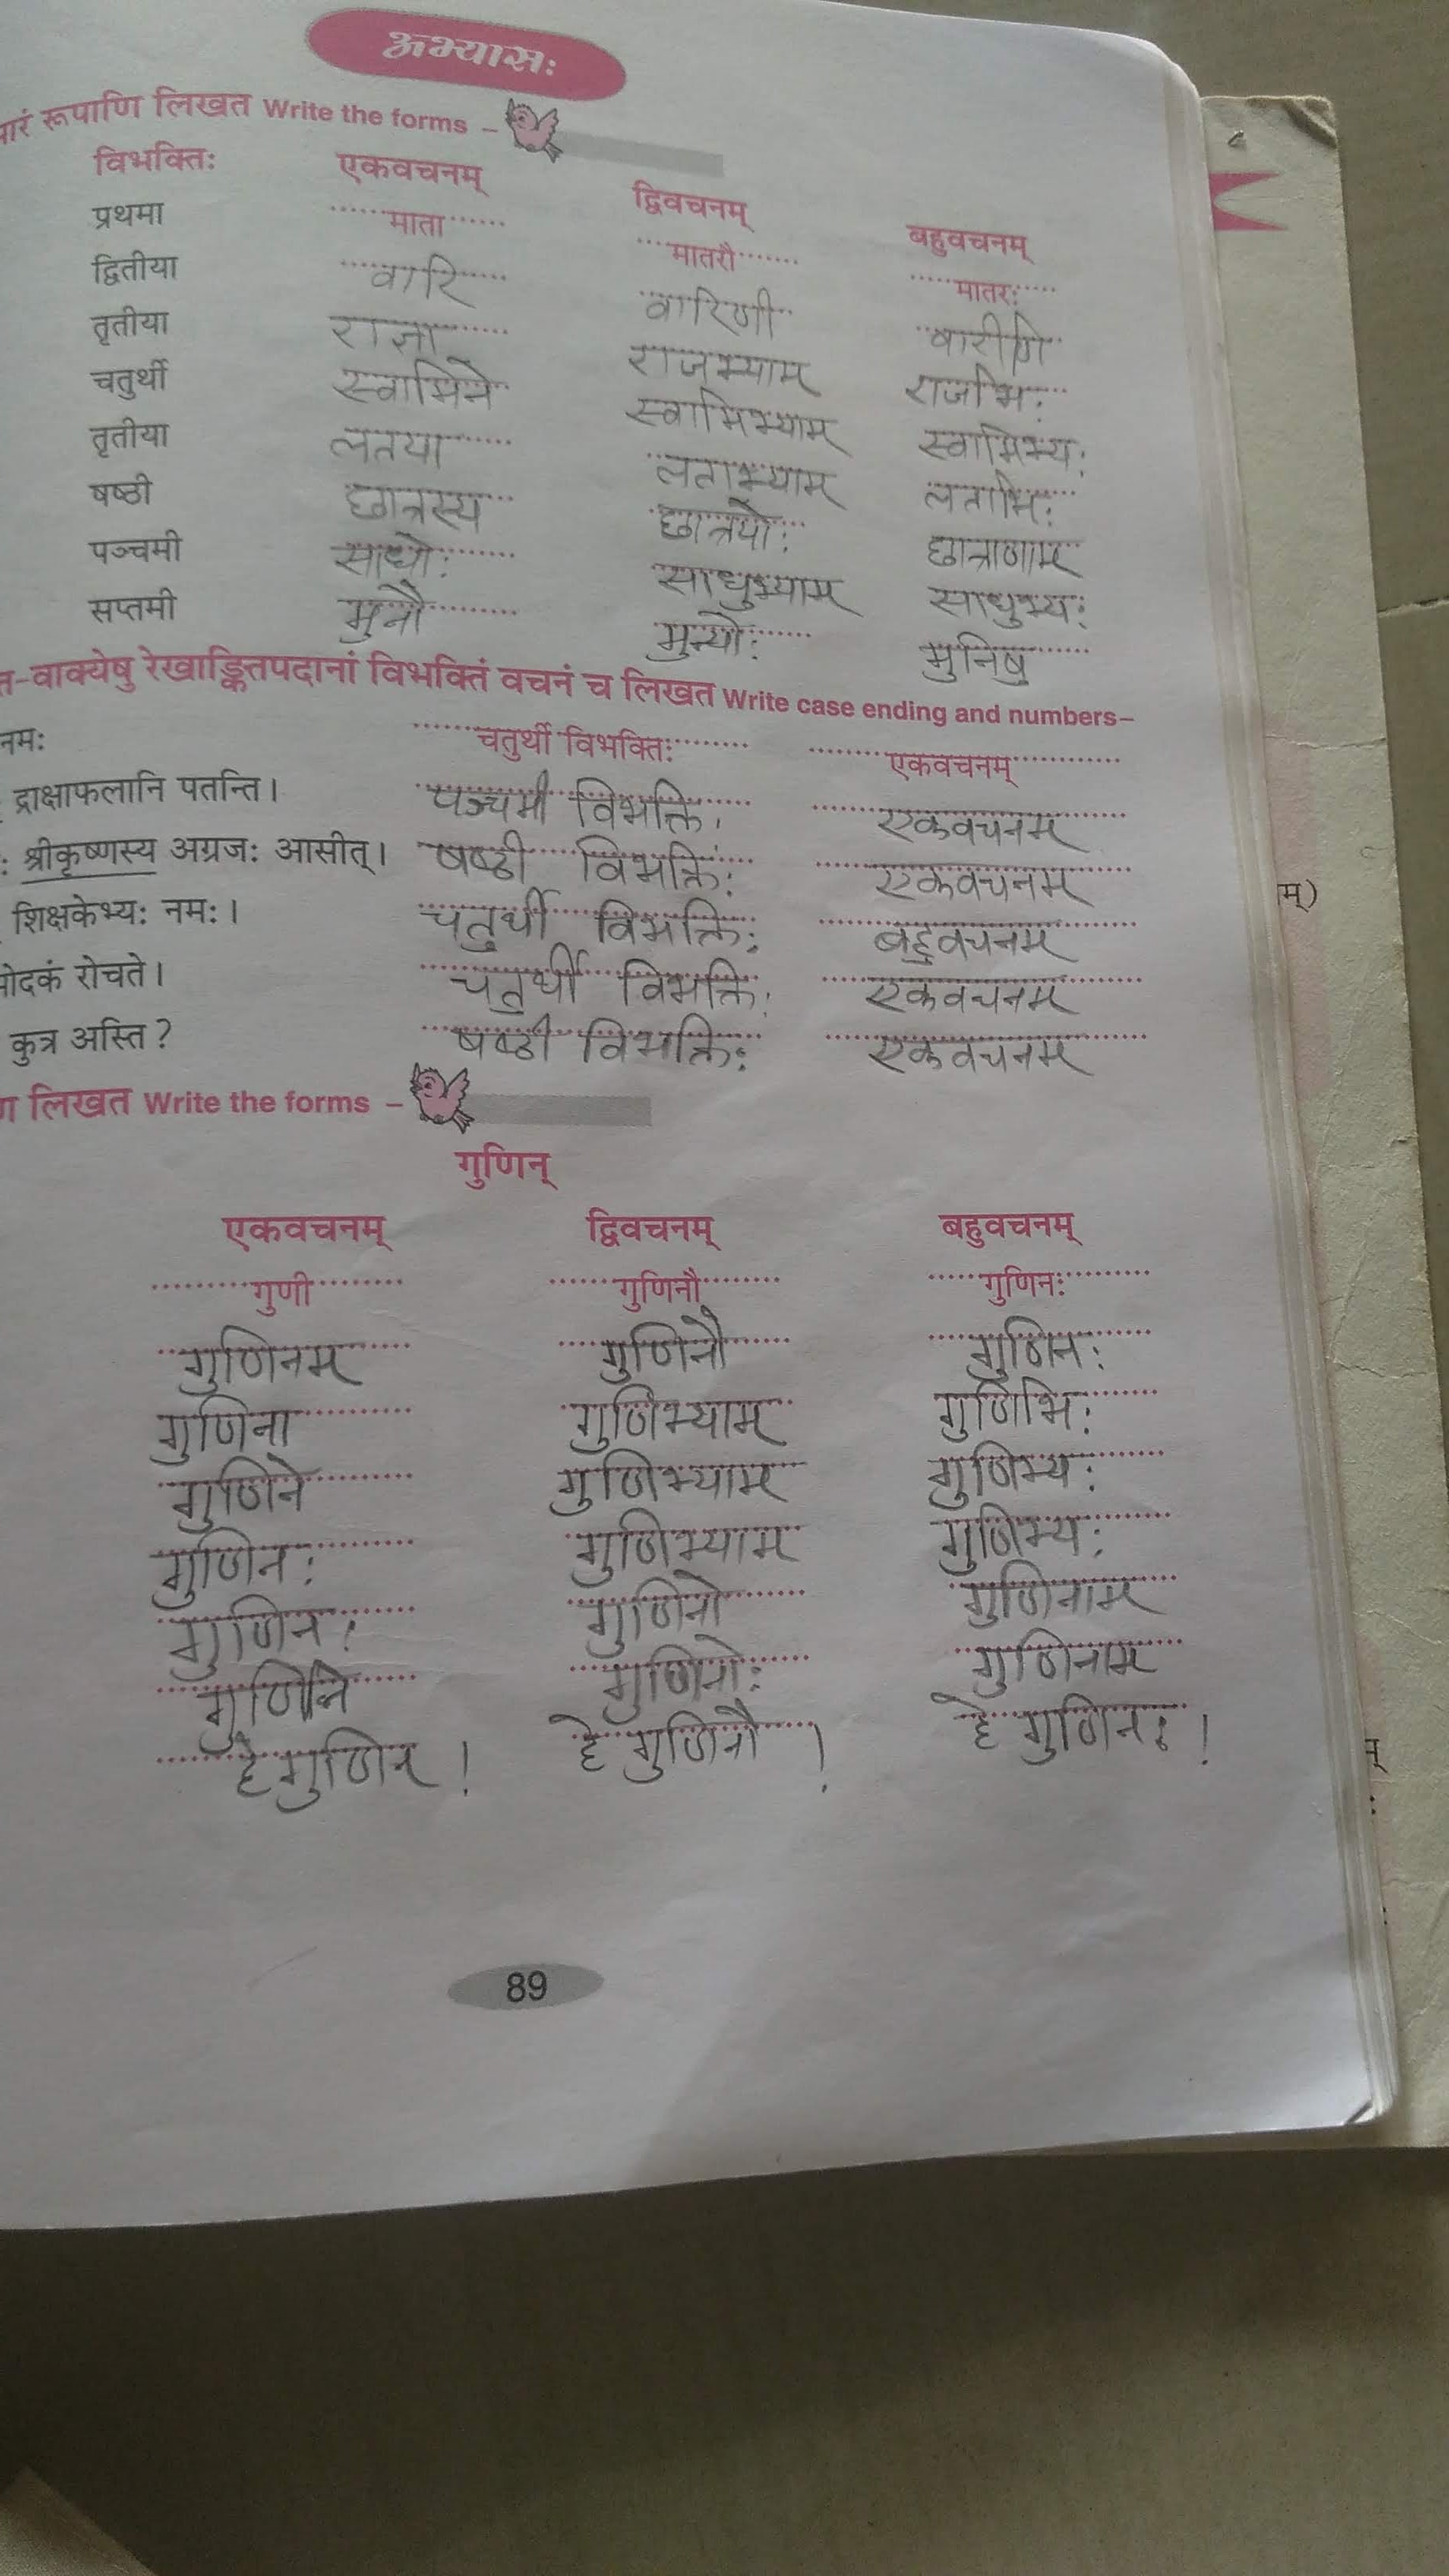 अभ्यासः
रूपाणि लिखत Write the forms –
विभक्तिः एकवचनम् द्विवचनम् बहुवचनम्
प्रथमा माता मातरौ मातरः
द्वितीया वारि वारिणी वारीणि
तृतीया राज्ञा राजभ्याम् राजभिः
चतुर्थी स्वामिने स्वामिभ्याम् स्वामिभ्यः
तृतीया लतया लताभ्याम् लताभिः
षष्ठी छात्रस्य छात्रयोः छात्राणाम्
पञ्चमी साधोः साधुभ्याम् साधुभ्यः
सप्तमी मुनौ मुन्योः मुनिषु
वाक्येषु रेखाङ्कितपदानां विभक्तिं वचनं च लिखत Write case ending and numbers–
नमः चतुर्थी विभक्तिः एकवचनम्
द्राक्षाफलानि पतन्ति। पञ्चमी विभक्तिः एकवचनम्
श्रीकृष्णस्य अग्रजः आसीत्। षष्ठी विभक्तिः एकवचनम्
शिक्षकेभ्यः नमः। चतुर्थी विभक्तिः बहुवचनम्
रोचते। चतुर्थी विभक्तिः एकवचनम्
कुत्र अस्ति? षष्ठी विभक्तिः एकवचनम्
लिखत Write the forms –
गुणिन्
एकवचनम् द्विवचनम् बहुवचनम्
गुणी गुणिनौ गुणिनः
गुणिनम् गुणिनौ गुणिनः
गुणिना गुणिभ्याम् गुणिभिः
गुणिने गुणिभ्याम् गुणिभ्यः
गुणिनः गुणिभ्याम् गुणिभ्यः
गुणिनः गुणिनो गुणिनाम्
गुणिनि गुणिनोः गुणिनाम्
हे गुणिन् ! हे गुणिनौ ! हे गुणिनः !
89